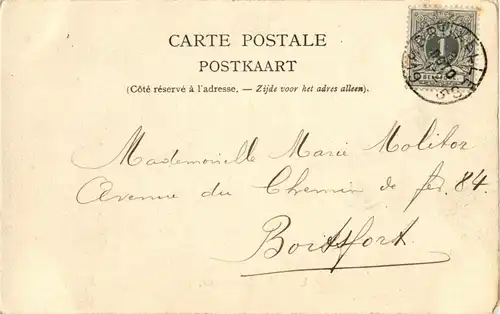 CARTE POSTALE
POSTKAART
(Côté réservé à l'adresse. — Zijde voor het adres alleen).
1
Mademoiselle Marie Molitor
Avenue du Chemin de fer 84.
Boitsfort